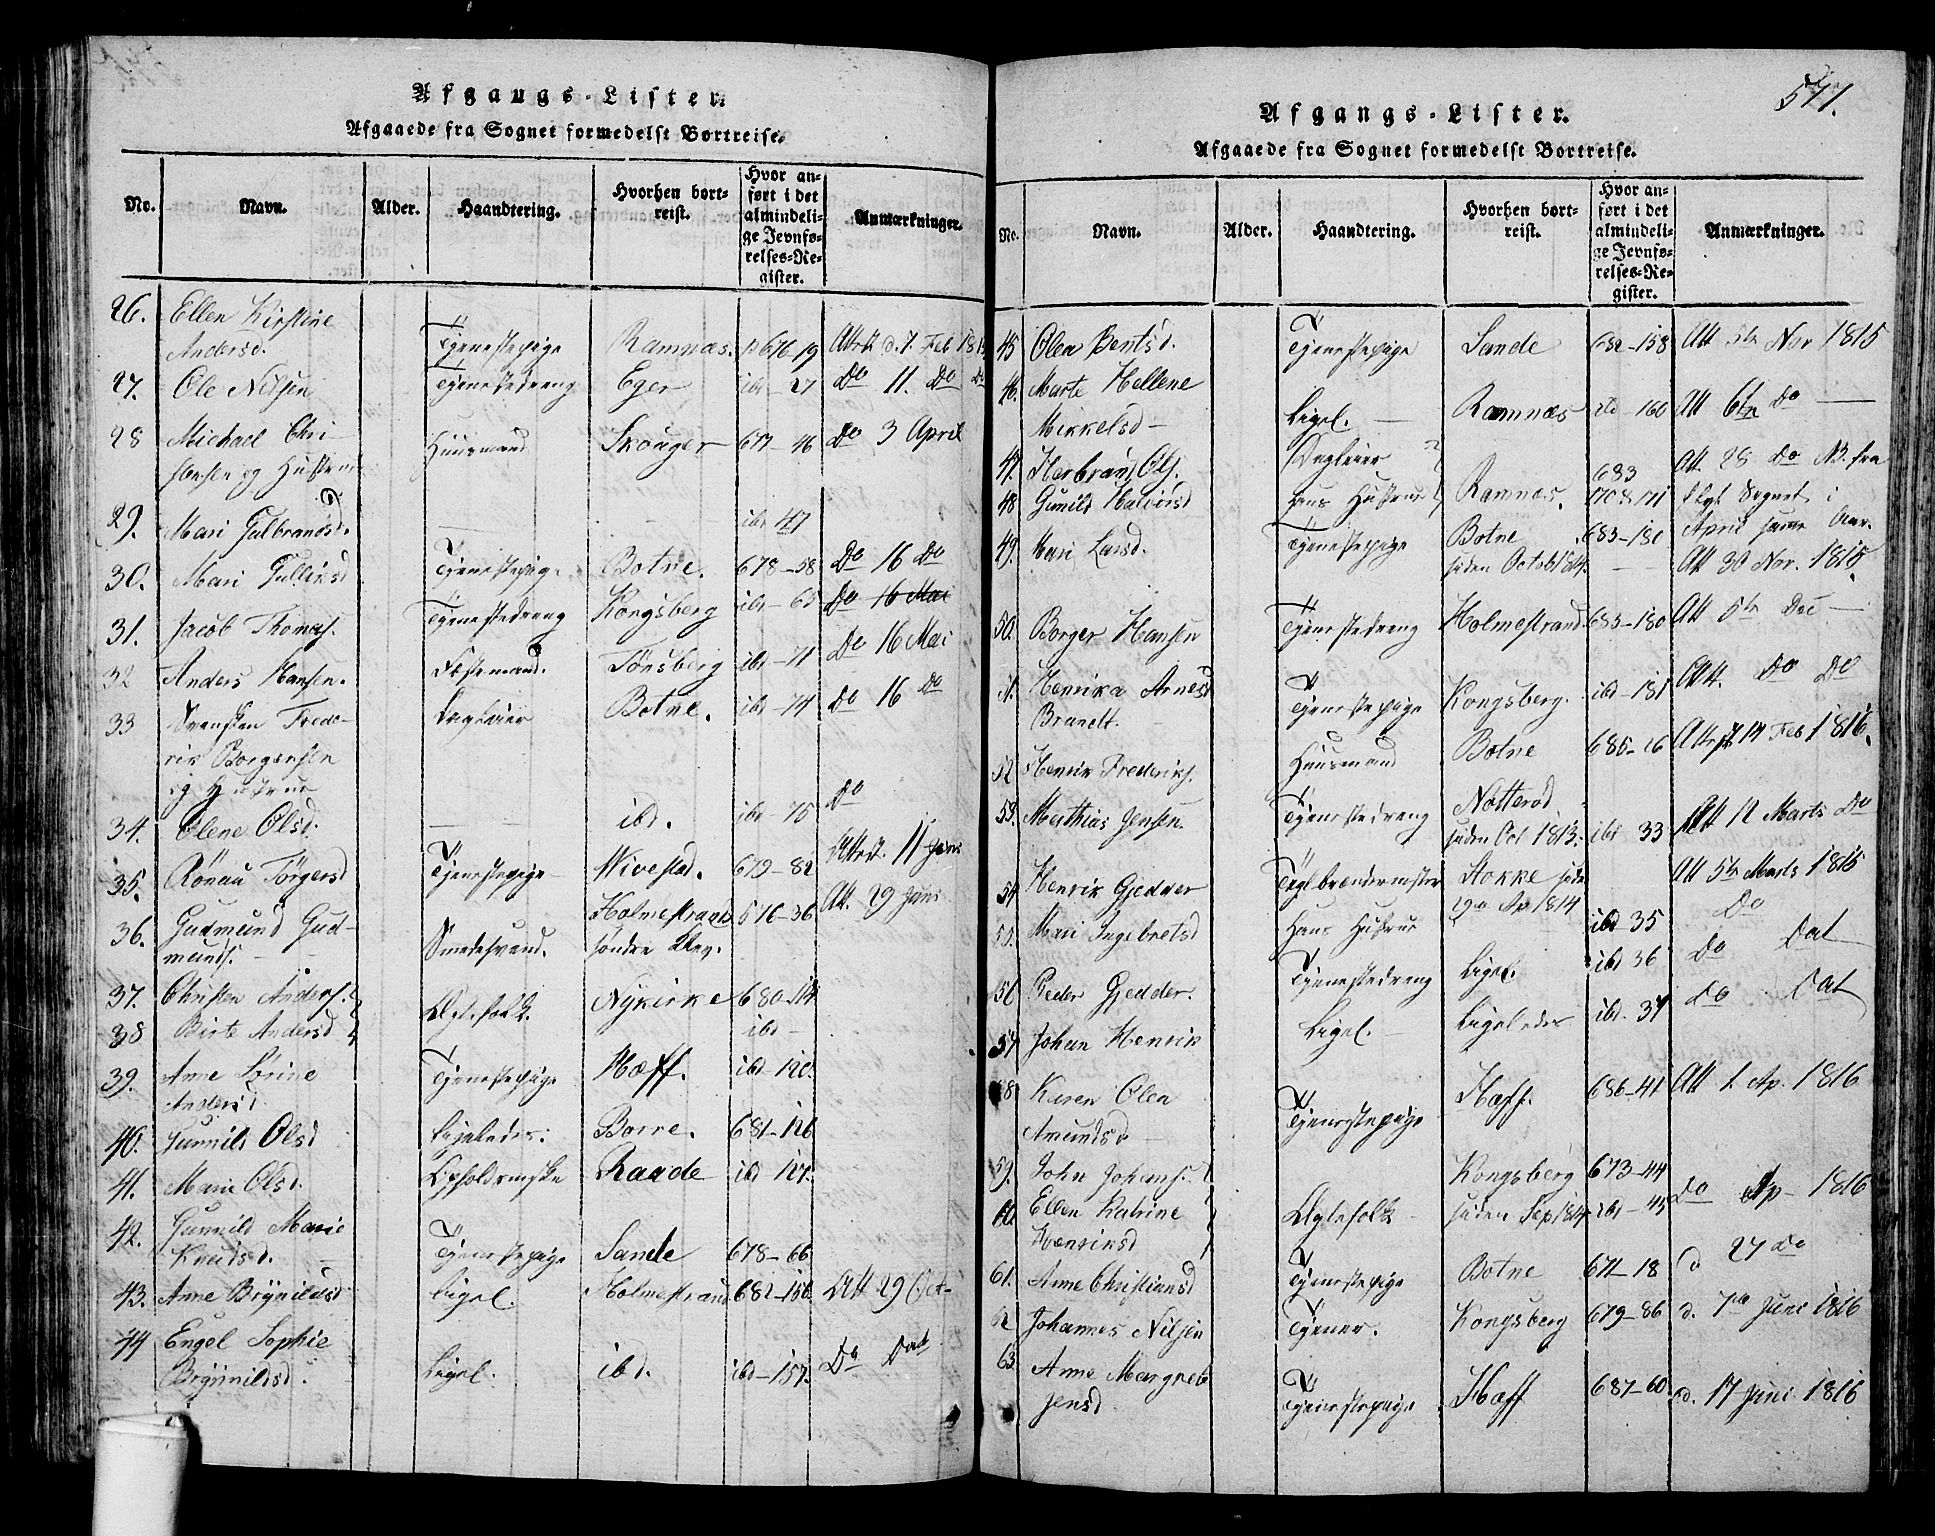 Afgangs-Lister.
Afgaaede fra Sognet formedelst Bortreise.
No. Navn. Alder. Haandtering. Hvorhen bortreist. Hvor anført i det almindelige Jevnførelses-Register. Anmærkninger.
26. Ellen Kirstine
Andersd. Tjenestepige Ramnæs. p 676-19 Attest d. 7 Feb 1815
27. Ole Nilsen Tjenestedreng Eger ibd - 27 Do 11. Do Do
28 Michael Chri-
stensen og Hustrue Huusmand Skouger 677-46 Do 3 April
29. Mari Gulbransd. - - ibd 47
30. Mari Gullixsd Tjenestepige Botne. 678-58 Do 16 Do
31. Jacob Thomas. Tjenestedreng Kongsberg ibd - 65 Do 16 Mai
32 Anders Hansen. Tønsberg ibd - 71 Do 16 Mai
33 Svensken Frede-
rik Borgersen
og Hustrue Botne. ibd - 74 Do 16 Do
34. Olene Olsd. - - ibd. ibd - 75 Do
35. Rønau Torgersd Tjenestepige Hivestad. 679-82 Attest. 11 Juni
36. Gudmund Gud-
munds. Smedesvend. Holmestrand
søndre 576-36 Att. 29 Juni
37. Christen Anders. Ægtefolk. Nykirke 680-114
38 Birte Andersd ibd -
39. Anne Lorine
Andersd Tjenestepige Hoff. ibd-120.
40. Gunnild Olsd Ligeledes. Borre. 681-126
41. Marie Olsd. Raade ibd 127.
42. Gunnild Marie
Knudsd. Tjenestepige Sande 678-66
43. Anne Brynildsd Ligel. Holmestrand 682-156 Att 29 Oct.
44 Engel Sophie
Brynildsd. Ligel. ibd. ibd-157. Do Dat
577.
Afgangs-Lister.
Afgaaede fra Sognet formedelst Bortreise.
No. Navn. Alder. Haandtering. Hvorhen bortreist. Hvor anført i det almindelige Jevnførelses-Register. Anmærkninger.
45 Olea Bentsd. Tjenestepige Sande 682-158 Att 5te Nov 1815
46. Marte Hellene
Mikkelsd - Ligel. - Ramnæs ibd - 160 Att 6te Do -
47. Herbrand Ols. 683 Att. 28 Do NB. fra
48 Gunild Halvorsd hans Hustrue Ramnæs. 170 & 171 Sognet i
April samme Aar.
49. Kari Larsd. Tjenestepige Botne
siden Octob 1814. 683-180 Att 30 Nov. 1815
50. Borger Hansen Tjenestedreng Holmestrand 683-180 Att 5te Dec -
51. Henrika Arnesd
Brandt. - Tjenestepige Kongsberg. ibd - 181 Att. Do Do
52 Henrik Frederiks. Huusmand Botne 685-16 Attest 14 Feb 1816.
53. Mathias Jensen. Tjenestedreng Nøtterød
siden Oct 1813. ibd 33 Att 12 Marts Do
54 Henrik Gjedder Teglbrændermester Stokke siden
Ap 1814 ibd 35 Att 5te Marts 1815
55. Mari Ingebretsd Hans Hustrue Do
56 Peder Gjedder. Tjenestedreng Ligel. ibd 36 Do Dat
57 Johan Henrik Ligel. - Ligeledes ibd. 37 Do Dat
58 Karen Olea
Amundsd - Tjenestepige Hoff. 686-41 Att 1. Ap. 1816
59. John Johans. Kongsberg 673-44
60. Ellen Katrine
Henriksd Ægtefolk - siden Sep 1814 ibd - 45 Do Ap - 1816
61. Anne Christiansd Tjenestepige Botne 671-18 d 27 Do
62 Johannes Nilsen Tjener. Kongsberg 679-86 d. 7de Juni 1816
63. Anne Margrete
Jensd. Tjenestepige Hoff 687-60 d. 17 Juni 1816